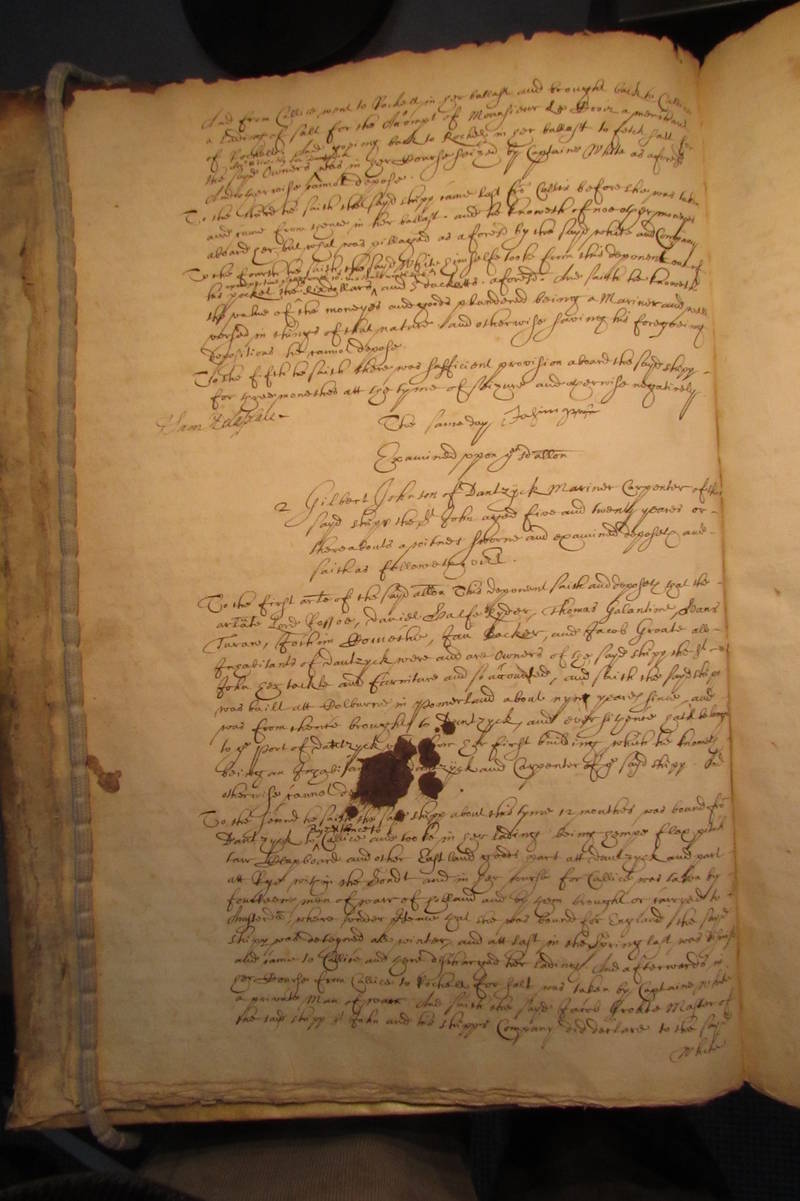 And from Callice went to Rochell in her ballast and brought back to Callice
a Lading of salt for the Accompt of Monnsieur La a merchant
of Rochell And going back to Rochell in her ballast to fetch salt for
the sayd Owners was in her Course seized by Captaine White as aforesd
And otherwise cannot depose.
To the third he saith the sayd shipp came last from Callis before she was taken
and came from thence in her ballast. and he knoweth of noe other moneys
aboard her but what was pillaged as aforesd by the sayd White and Company
To the fourth he saith the sayd White himselfe tooke from this deponent out of
his pocket the dollars and 5 duckets aforesd. And saith he knoweth
the value of the moneyes and goods plundered being a Mariner and not
versed in things of that nature. And otherwise saving his foregoeing
depositions he cannot depose.
To the fifth he saith there was sufficient provision aboard the sayd shipp
for three monethes att the tyme of seizure and otherwise negatively
The same day
Examined uppon the sd allon
2 Gilbert Johnson of Dantzyck Mariner Carpenter of the
sayd shipp the St John aged five and twenty yeares or
thereabouts a witnes sworne and examined deposeth and
saith as followeth vizt.
To the first arte of the sayd allon This deponent saith and deposeth that the
artate Lord Rossoe, Daniel Halfe Ryder, Thomas Galantine, Hans
Turaw, Jochim Domethie, Jan Becker, and Jacob Groate all
Inhabitants of Dantzyck were and are Owners of the sayd shipp the St
John her tackle and furniture and so accounted, and saith the sayd shipp
was built att Colburne in Pomerland about nyne yeares since, and
was from thence brought to Dantzyck, and ever sithence hath belonged
to the Port of Dantzyck her first building, which he knoweth
being an Inhabitant Dantzyck and Carpenter of the sayd shipp. And
otherwise cannot
To the second he saith the sayd shipp about this tyme 12 monthes was bound from
Dantzyck to Callice and tooke in her lading being hempe flax pitch
tarr Clapboard and other Eastland goods part att Dantzyck and part
att Rye within the Sondt and in her Course for Callice was taken by
fourteene men of warr of Holland and by them brought or carryed to
Amsterdam where under pretence that she was bound for England the sayd
shipp was deteyned all winter, and att last in the Spring last, was
and came to Callice and there discharged her lading. And afterwards in
her Course from Callice to Rochell for salt was taken by Captaine White
a private Man of warr. And saith the sayd Jacob Groote Master of
the said shipp St John and his shipps Company did declare to the sayd
White